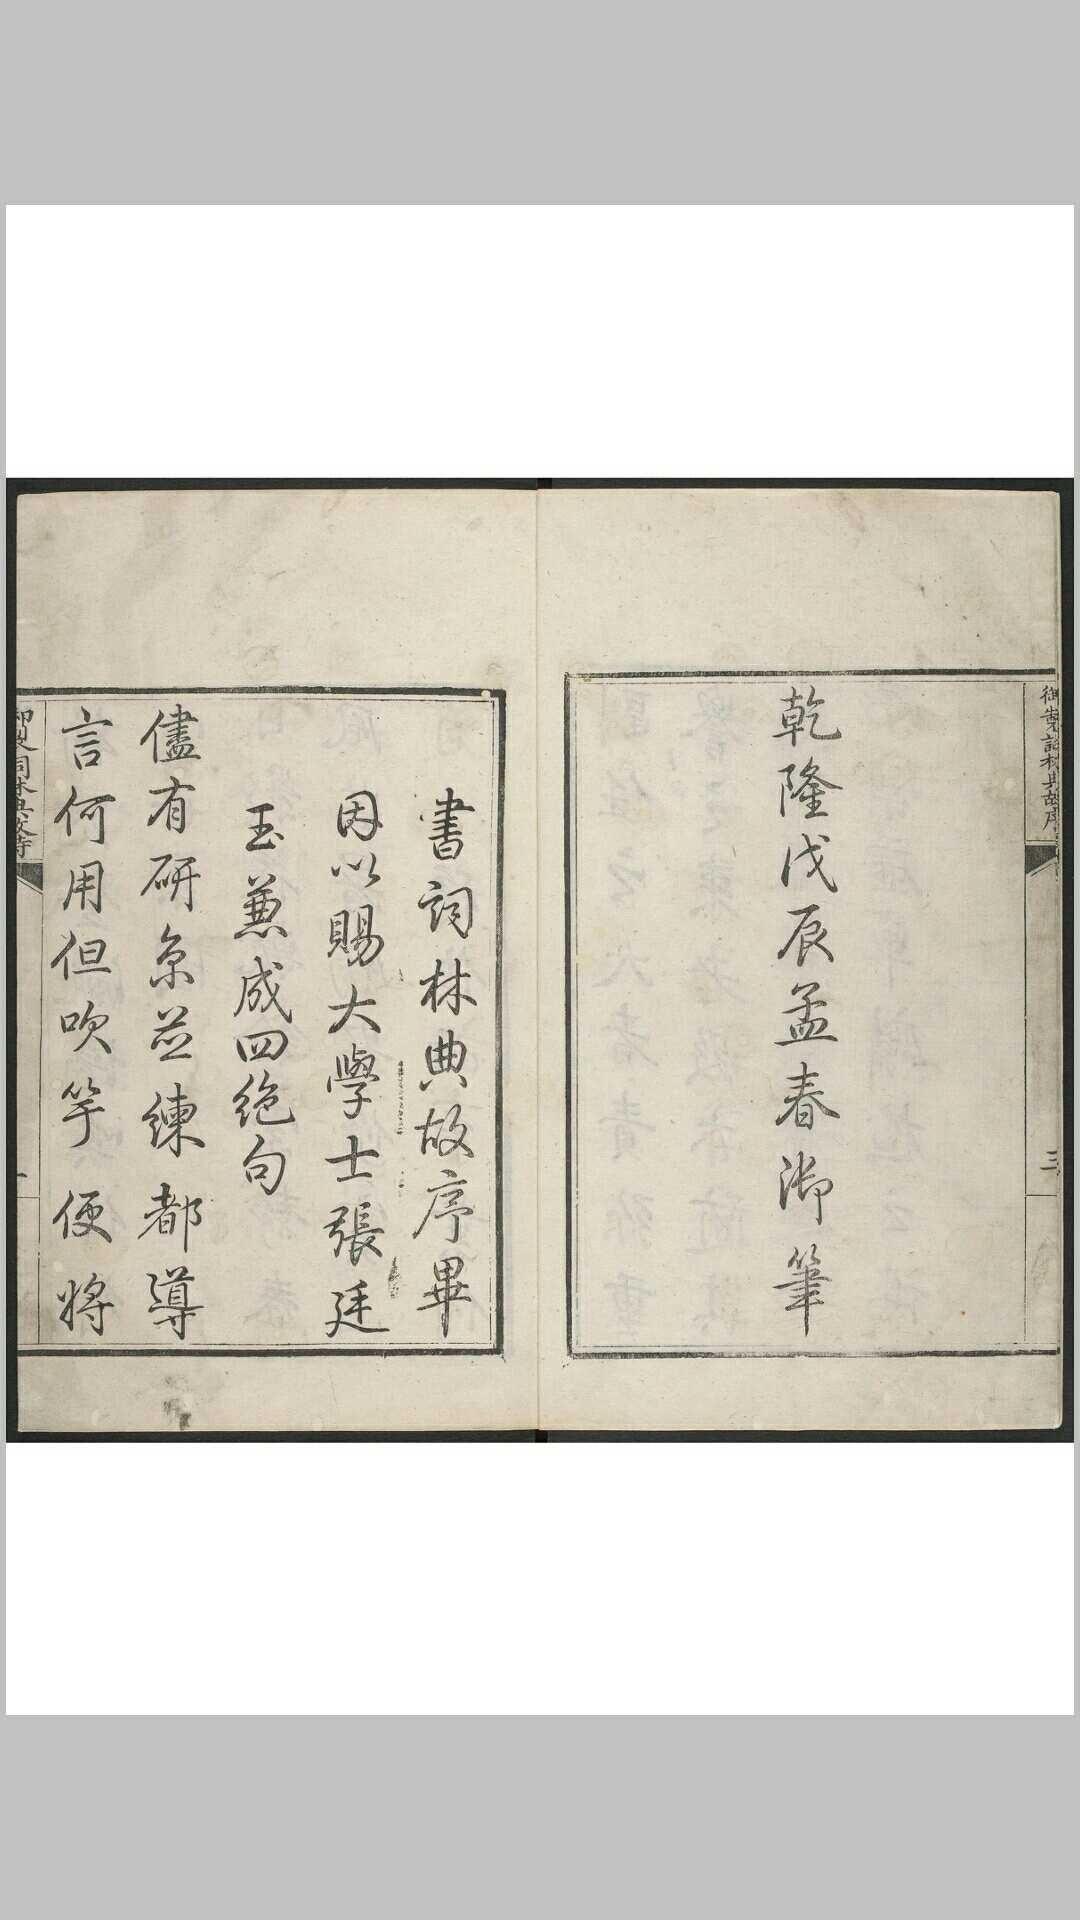 御製詞林典故序
三
乾隆戊辰孟春御筆
書詞林典故序畢
因以賜大學士張廷
玉兼成四絶句
儘有研京並練都導
言何用但吹竽便將
御製詞林典故詩
一